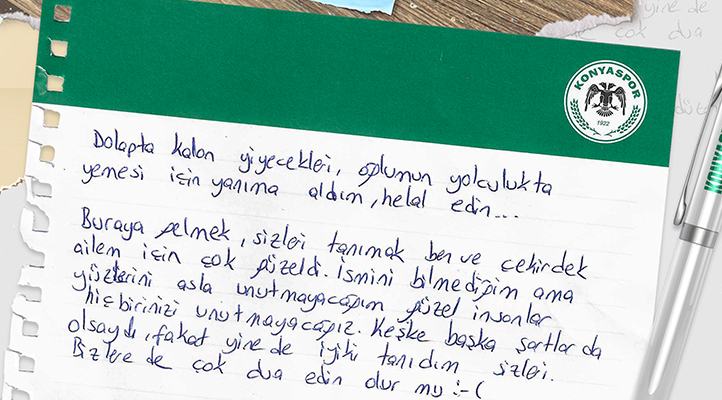 KONYASPOR
1922
Dolapta kalan yiyecekleri, oğlumun yolculukta
yemesi için yanıma aldım, helal edin...
Buraya gelmek, sizleri tanımak ben ve çekirdek
ailem için çok güzeldi. İsmini bilmediğim ama
yüzlerini asla unutmayacağım güzel insanlar
hiçbirinizi unutmayacağız. Keşke başka şartlarda
olsaydı, fakat yine de iyiki tanıdım sizleri.
Bizlere de çok dua edin olur mu :-(
yine de
çok dua